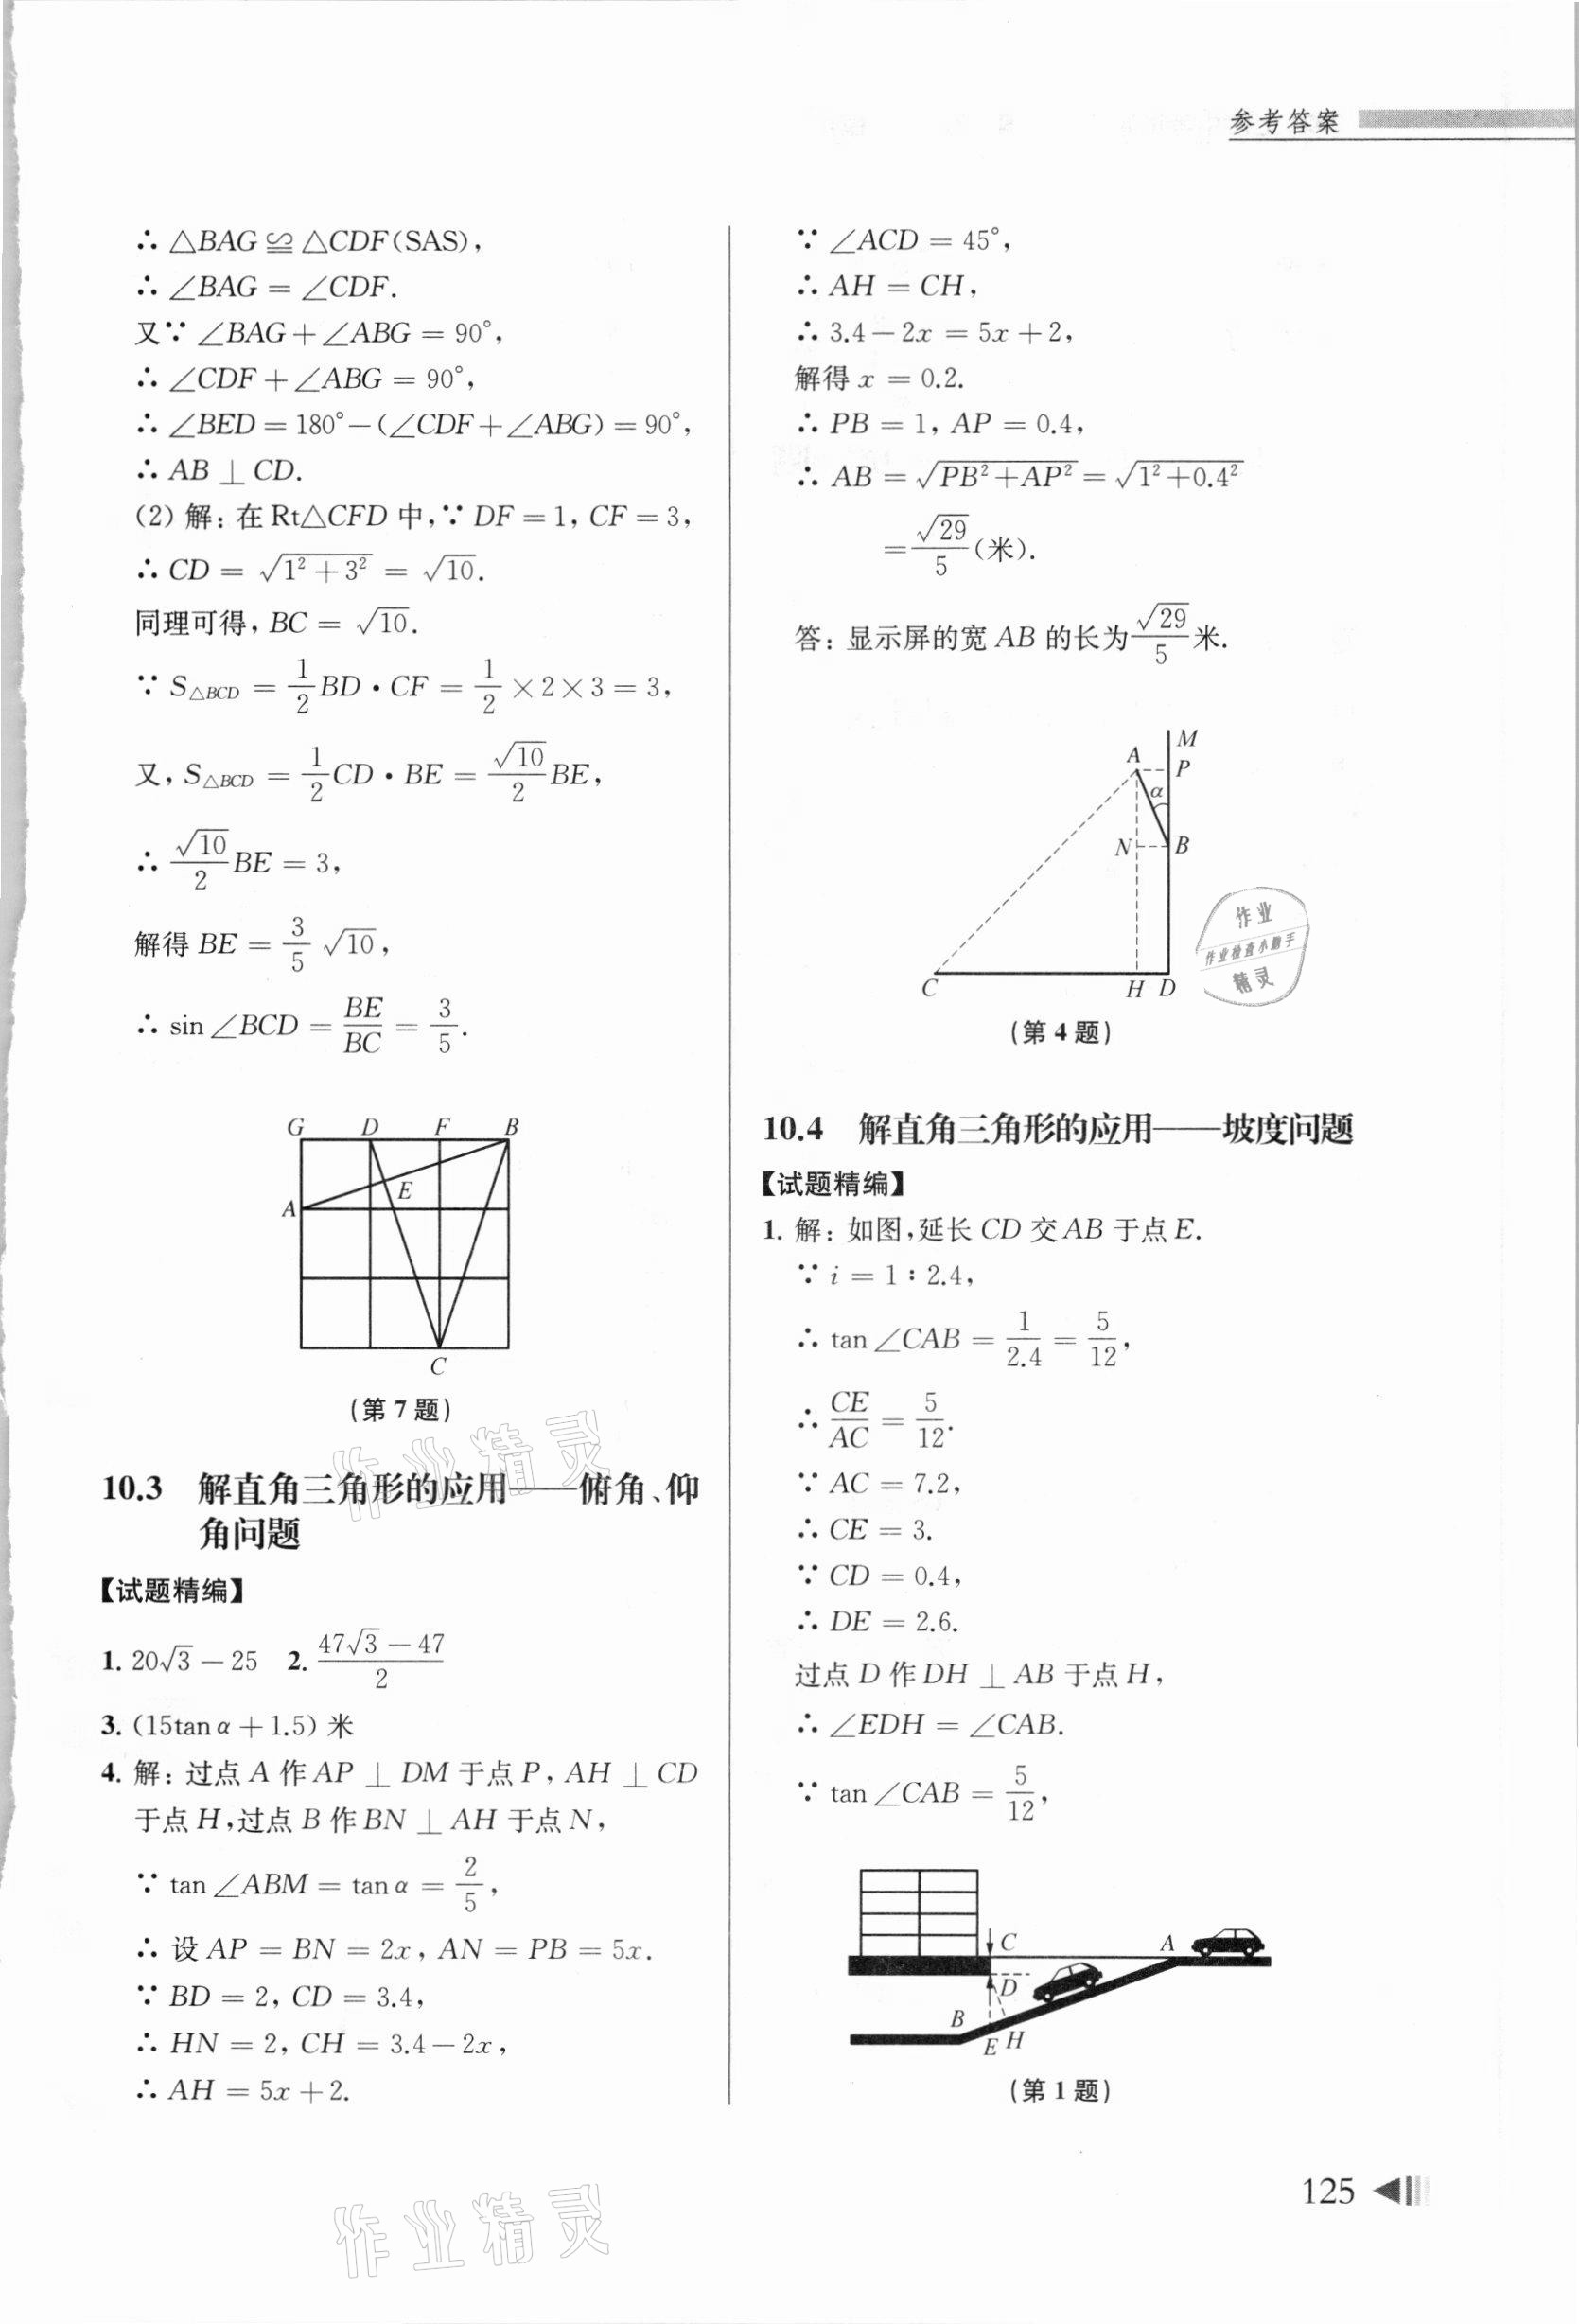 参考答案
∴ △BAG≌△CDF(SAS),
∴ ∠BAG = ∠CDF.
又∵ ∠BAG+∠ABG = 90°,
∴ ∠CDF+∠ABG = 90°,
∴ ∠BED = 180°-(∠CDF+∠ABG) = 90°,
∴ AB ⊥ CD.
(2) 解: 在 Rt△CFD 中, ∵ DF = 1, CF = 3,
∴ CD = √(1²+3²) = √10.
同理可得, BC = √10.
∵ S△BCD = 1/2 BD·CF = 1/2 × 2 × 3 = 3,
又, S△BCD = 1/2 CD·BE = √10/2 BE,
∴ √10/2 BE = 3,
解得 BE = 3/5 √10,
∴ sin∠BCD = BE/BC = 3/5.
G D F B
E
A
C
(第 7 题)
10.3 解直角三角形的应用——俯角、仰
角问题
【试题精编】
1. 20√3 - 25 2. (47√3 - 47)/2
3. (15tan α + 1.5) 米
4. 解: 过点 A 作 AP ⊥ DM 于点 P, AH ⊥ CD
于点 H, 过点 B 作 BN ⊥ AH 于点 N,
∵ tan∠ABM = tan α = 2/5,
∴ 设 AP = BN = 2x, AN = PB = 5x.
∵ BD = 2, CD = 3.4,
∴ HN = 2, CH = 3.4-2x,
∴ AH = 5x+2.
∵ ∠ACD = 45°,
∴ AH = CH,
∴ 3.4-2x = 5x+2,
解得 x = 0.2.
∴ PB = 1, AP = 0.4,
∴ AB = √(PB²+AP²) = √(1²+0.4²)
= √29/5 (米).
答: 显示屏的宽 AB 的长为 √29/5 米.
M
A P
α
N B
C H D
(第 4 题)
作业
作业检查小助手
精灵
10.4 解直角三角形的应用——坡度问题
【试题精编】
1. 解: 如图, 延长 CD 交 AB 于点 E.
∵ i = 1∶2.4,
∴ tan∠CAB = 1/2.4 = 5/12,
∴ CE/AC = 5/12.
∵ AC = 7.2,
∴ CE = 3.
∵ CD = 0.4,
∴ DE = 2.6.
过点 D 作 DH ⊥ AB 于点 H,
∴ ∠EDH = ∠CAB.
∵ tan∠CAB = 5/12,
C A
D
B
E H
(第 1 题)
作业精灵
作业精灵
125